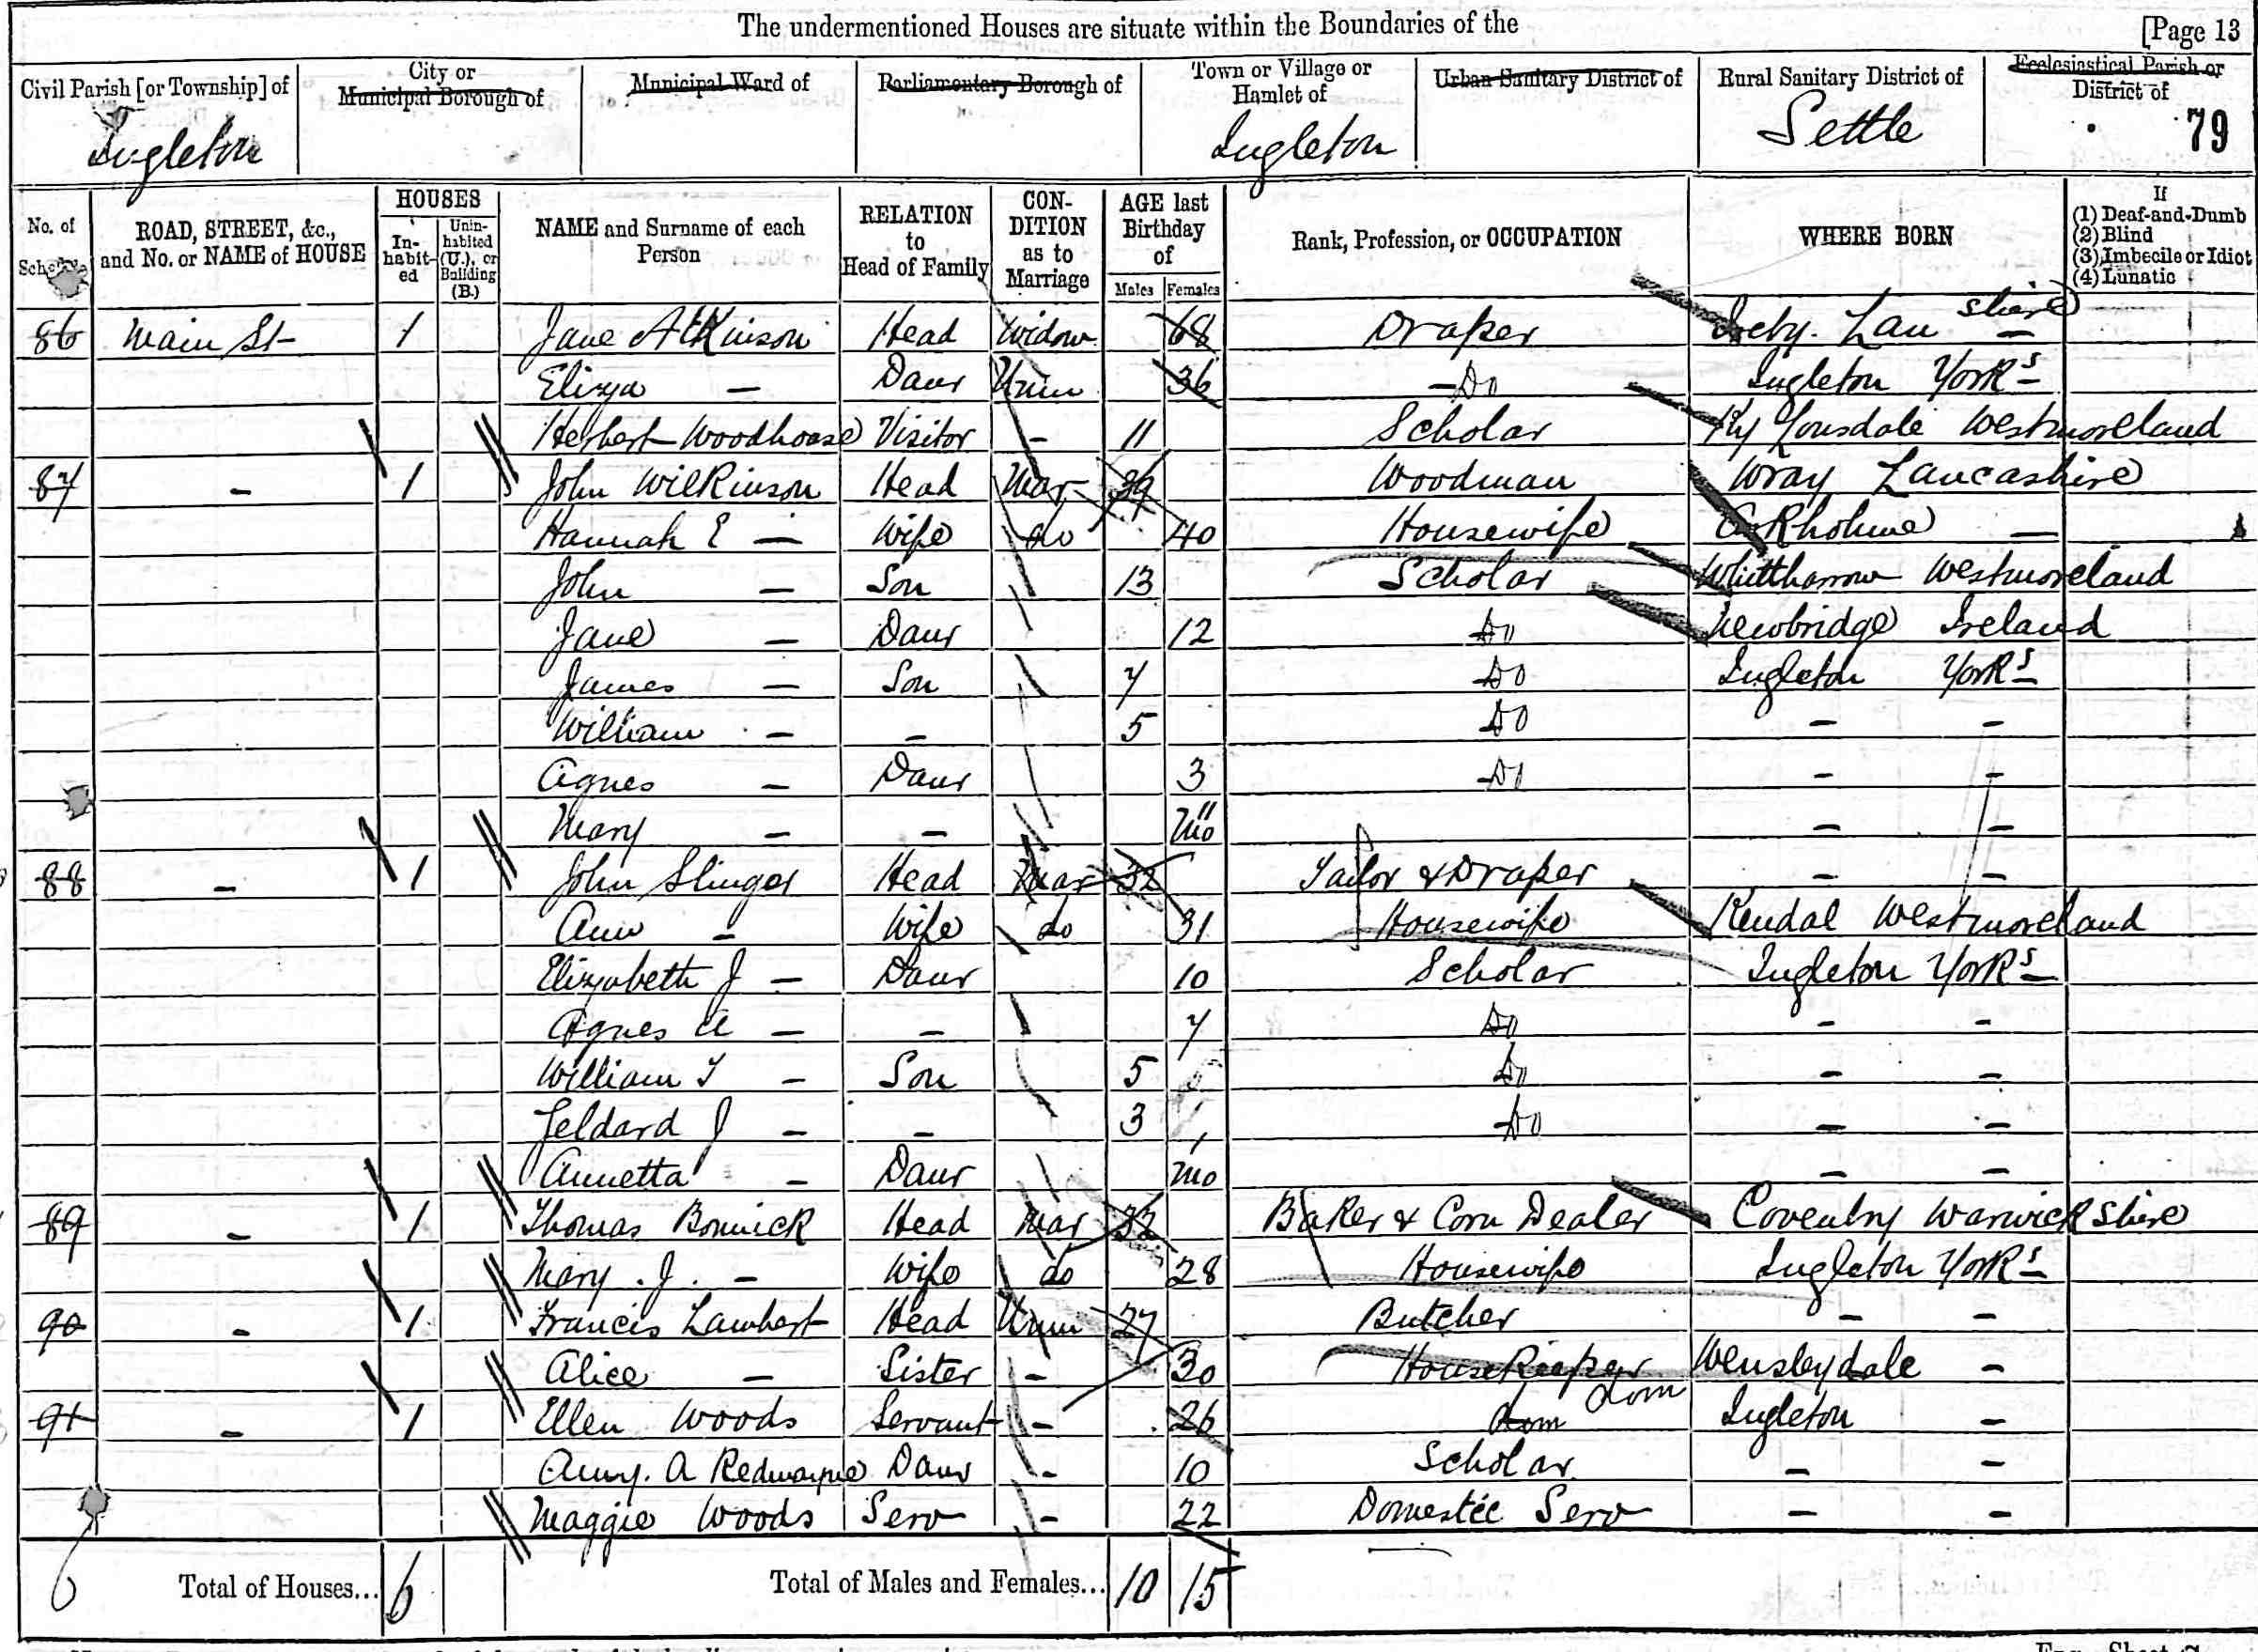 The undermentioned Houses are situate within the Boundaries of the [Page 13
Civil Parish [or Township] of City or Municipal Borough of Municipal Ward of Parliamentary Borough of Town or Village or Hamlet of Urban Sanitary District of Rural Sanitary District of Ecclesiastical Parish or District of
Ingleton Ingleton Settle 79
No. of Schedule ROAD, STREET, &c., and No. or NAME of HOUSE HOUSES Inhabited Uninhabited (U.), or Building (B.) NAME and Surname of each Person RELATION to Head of Family CONDITION as to Marriage AGE last Birthday of Males Females Rank, Profession, or OCCUPATION WHERE BORN If (1) Deaf-and-Dumb (2) Blind (3) Imbecile or Idiot (4) Lunatic
86 Main St 1 Jane Atkinson Head Widow 68 Draper Ireby Lan shire —
Eliza — Daur Unm 36 Do Ingleton Yorks
Herbert Woodhouse Visitor - 11 Scholar Kby Lonsdale Westmoreland
87 - 1 John Wilkinson Head Mar 39 Woodman Wray Lancashire
Hannah E — Wife do 40 Housewife Arkholme —
John — Son 13 Scholar Whittbarrow Westmoreland
Jane — Daur 12 Do Newbridge Ireland
James — Son 7 Do Ingleton Yorks
William — - 5 Do - -
Agnes — Daur 3 Do - -
Mary — - 11 mo - -
88 - 1 John Slinger Head Mar 32 Tailor & Draper - -
Ann - Wife do 31 Housewife Kendal Westmoreland
Elizabeth J - Daur 10 Scholar Ingleton Yorks
Agnes A - - 7 Do - -
William T - Son 5 Do - -
Jeldard J - - 3 Do - -
Annetta - Daur 1 mo - -
89 - 1 Thomas Bonnick Head Mar 32 Baker & Corn Dealer Coventry Warwickshire
Mary. J. - Wife do 28 Housewife Ingleton Yorks
90 - 1 Francis Lambert Head Unm 27 Butcher - -
Alice — Sister - 30 Housekeeper dom Wensleydale -
91 - 1 Ellen Woods Servant - 26 dom Ingleton -
Amy. A Redmayne Daur - 10 Scholar - -
Maggie Woods Serv - 22 Domestic Serv - -
6 Total of Houses... 6 Total of Males and Females... 10 15